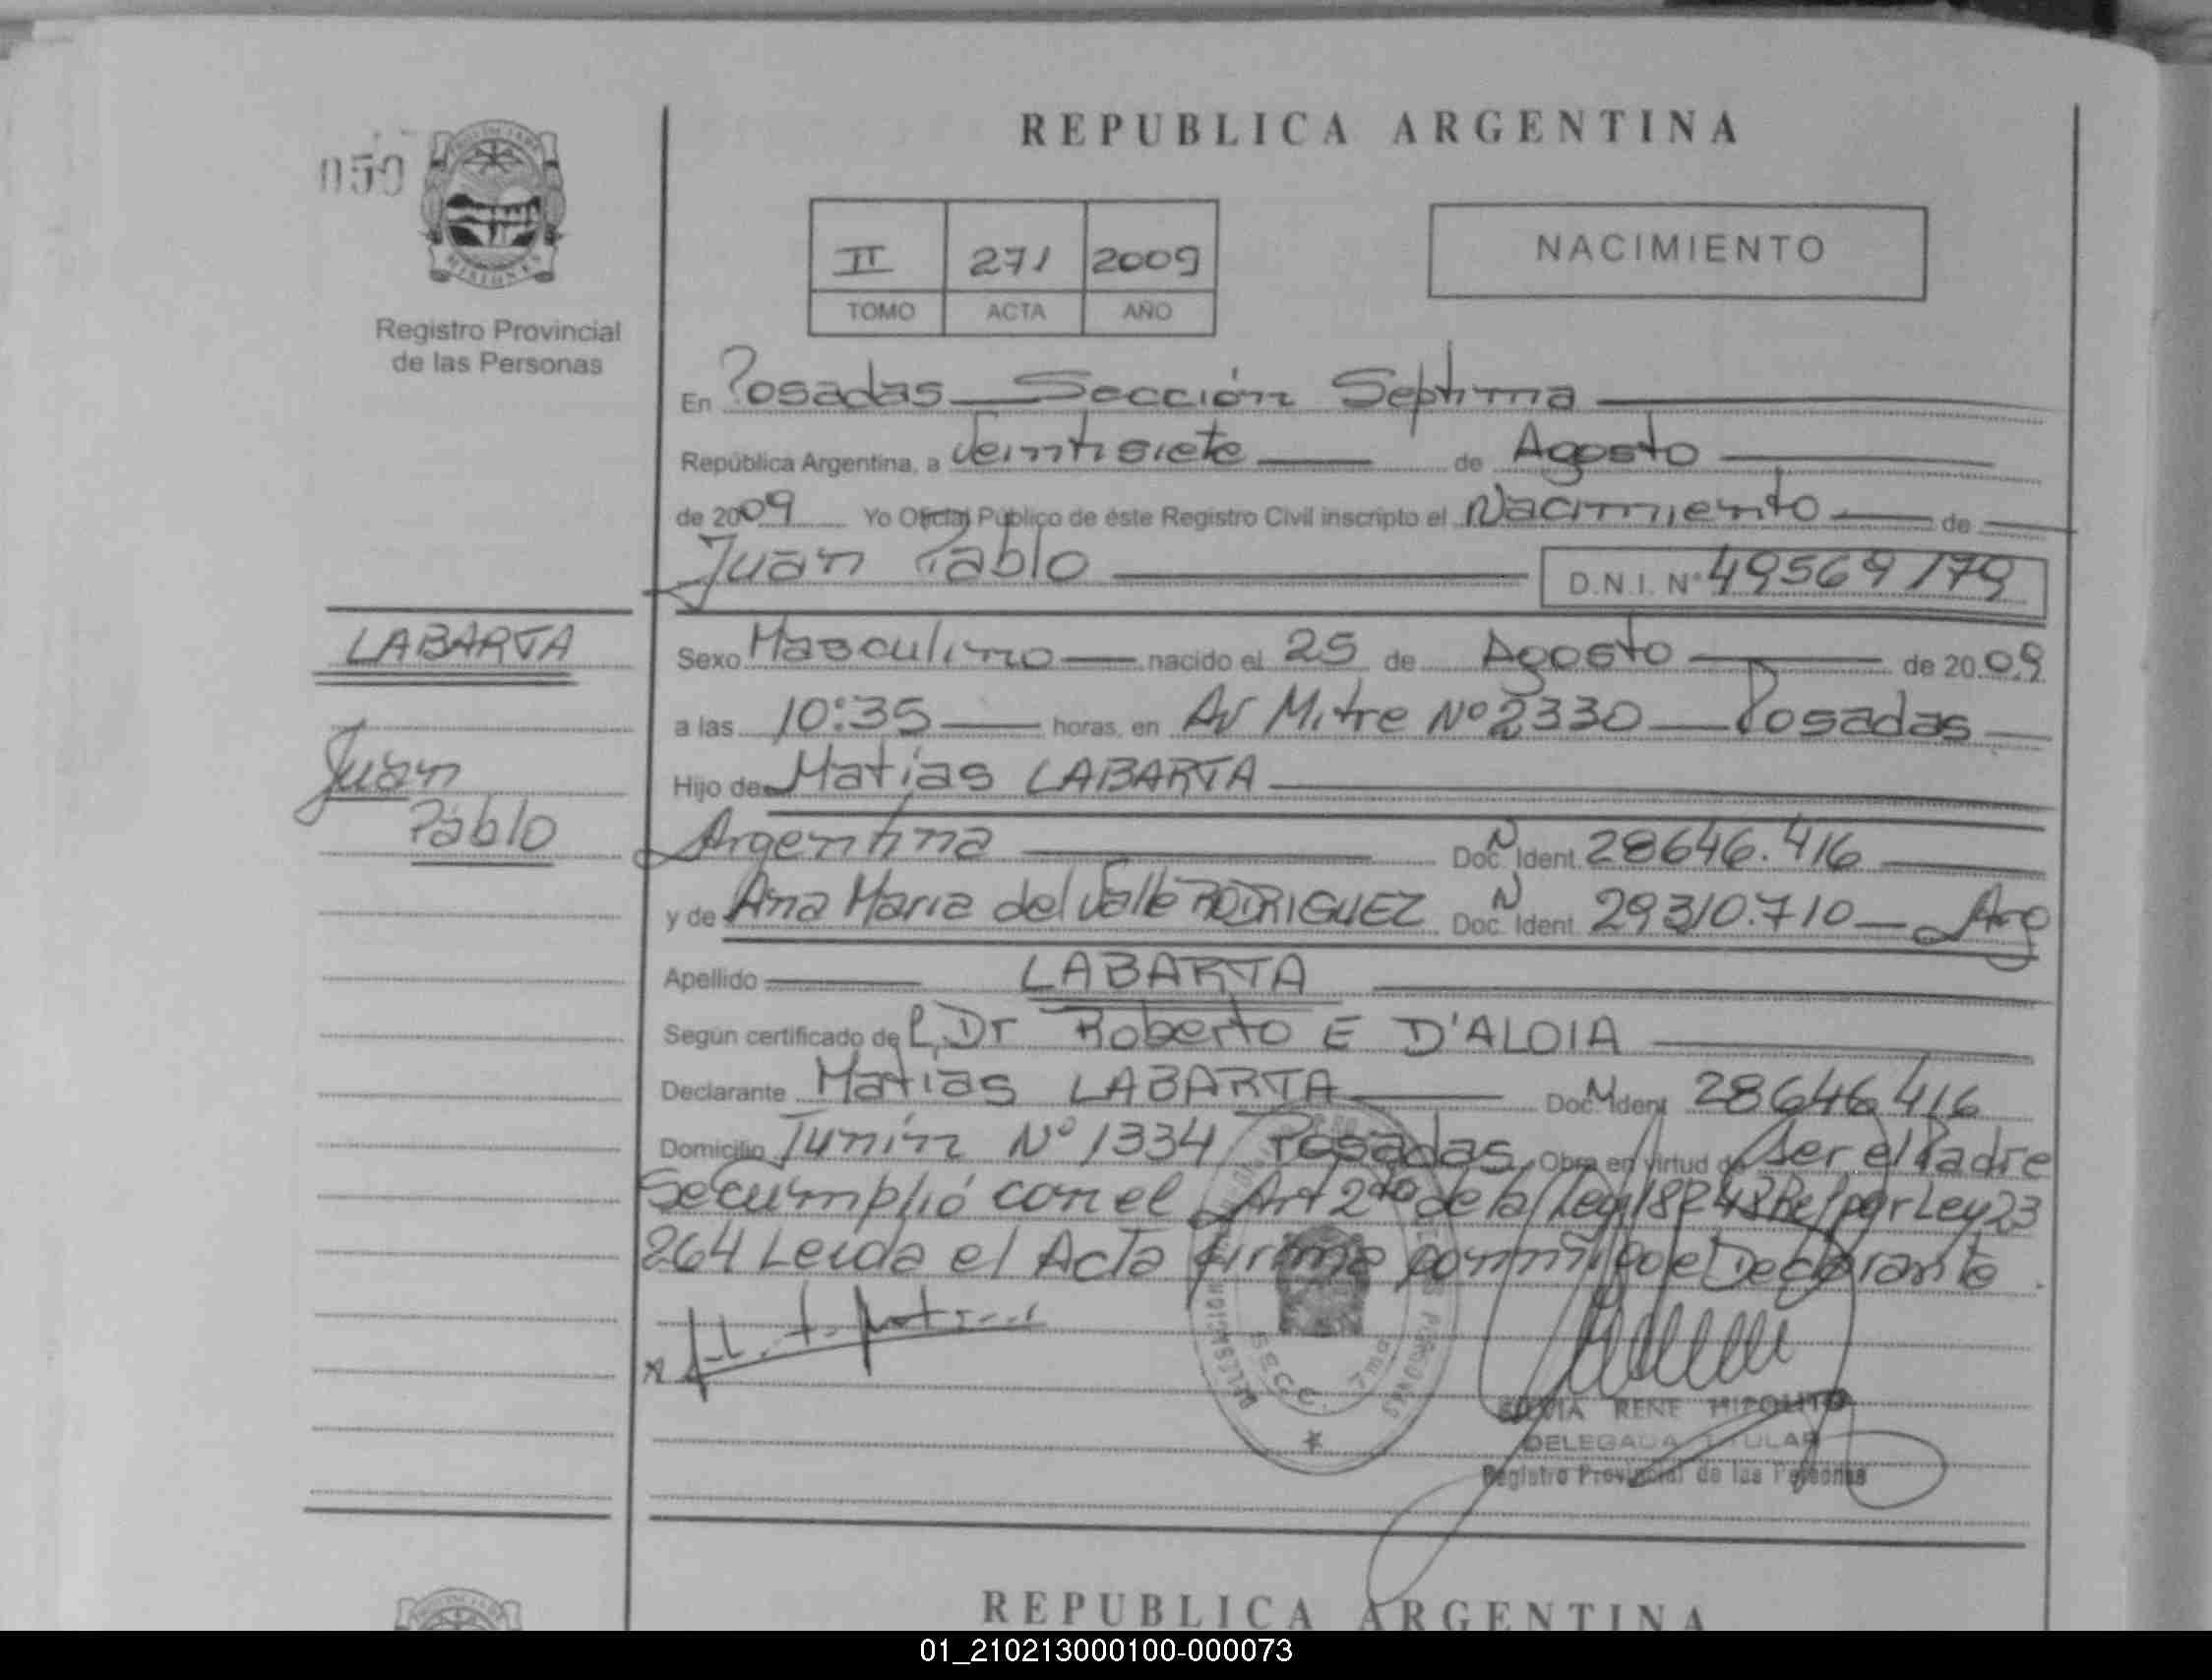 REPUBLICA ARGENTINA
050
MISIONES
Registro Provincial
de las Personas
II 271 2009
TOMO ACTA AÑO
NACIMIENTO
En Posadas Sección Septima
República Argentina, a Veintisiete de Agosto
de 2009 Yo Oficial Público de éste Registro Civil inscripto el Nacimiento de
Juan Pablo D.N.I. Nº 49569179
LABARTA
Juan
Pablo
Sexo Masculino nacido el 25 de Agosto de 2009
a las 10:35 horas, en Av Mitre Nº 2330 Posadas
Hijo de Matias LABARTA
Argentina Doc. Ident. N 28646.416
y de Ana Maria del Valle RODRIGUEZ Doc. Ident. N 29310.710 Arg
Apellido LABARTA
Según certificado de l Dr Roberto E D'ALOIA
Declarante Matias LABARTA Doc. Ident N 28646416
Domicilio Junín Nº 1334 Posadas Obra en virtud de Ser el Padre
Se cumplió con el Art 2do de la Ley 18248 Ref por Ley 23
264 Leida el Acta firma conmigo el Declarante
SILVIA RENE HIPOLITO
DELEGADA TITULAR
Registro Provincial de las Personas
REPUBLICA ARGENTINA
01_210213000100-000073